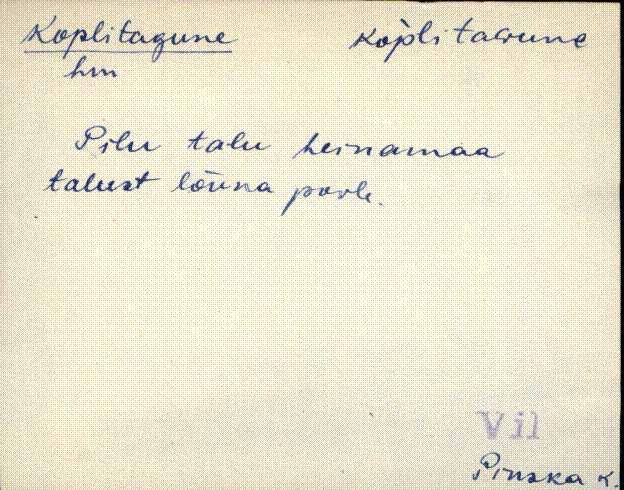 Koplitagune koplitaGune
hm
Pilu talu heinamaa
talust lõuna poole.
Vil
Pinska K.